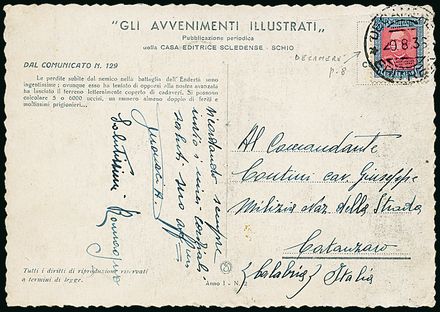 "GLI AVVENIMENTI ILLUSTRATI„
Pubblicazione periodica
della CASA EDITRICE SCLEDENSE - SCHIO
DAL COMUNICATO N. 129
Le perdite subite dal nemico nella battaglia dell'Endertà sono
ingentissime; ovunque esso ha tentato di opporsi alla nostra avanzata
ha lasciato il terreno letteralmente coperto di cadaveri. Si possono
calcolare 5 o 6000 uccisi, un numero almeno doppio di feriti e
moltissimi prigionieri...
p. 8
8.36
Ricordando sempre
invio i miei cordiali
saluti
Salutissimi Romagnero
Al Comandante
Contini cav. Giuseppe
Milizia Naz. della Strada
Catanzaro
(Calabria) Italia
Tutti i diritti di riproduzione riservati
a termini di legge.
Anno I - N. 2